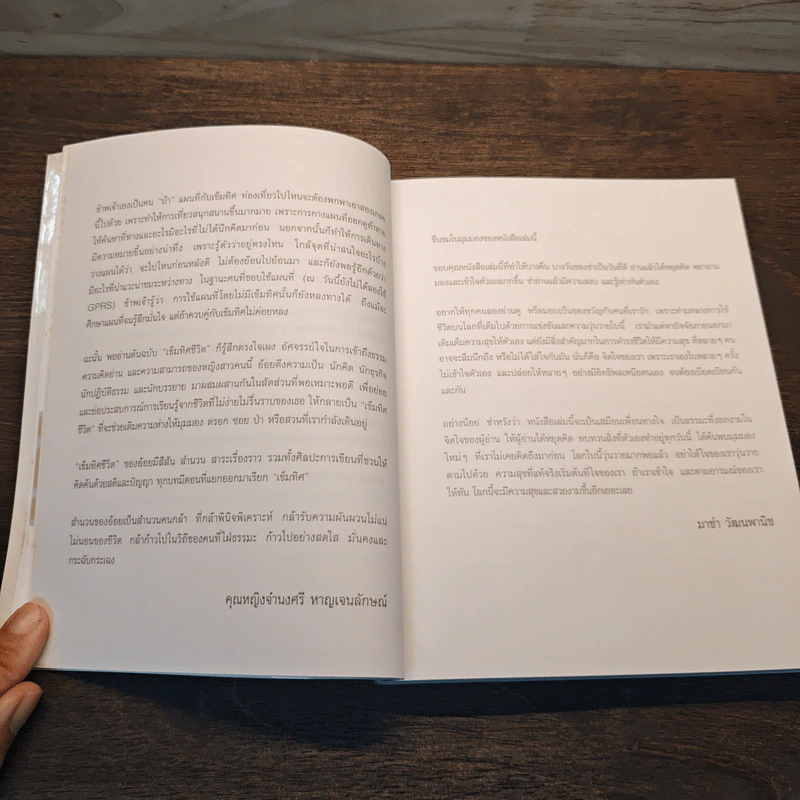 ข้าพเจ้าเองเป็นคน "บ้า" แผนที่กับเข็มทิศ ท่องเที่ยวไปไหนจะต้องพกพาเอาสองเกลอ
นี้ไปด้วย เพราะทำให้การเที่ยวสนุกสนานขึ้นมากมาย เพราะการกางแผนที่ออกดูทำทาย
ให้ค้นหาที่ทางและอะไรมิอะไรที่ไม่ได้นึกคิดมาก่อน นอกจากนั้นก็ทำให้การเดินทาง
มีความหมายขึ้นอย่างน่าทึ่ง เพราะรู้ตัวว่าอยู่ตรงไหน ใกล้จุดที่น่าสนใจอะไรบ้าง
วางแผนได้ว่า จะไปไหนก่อนหลังดี ไม่ต้องย้อนไปย้อนมา และก็ยังพอรู้อีกด้วยว่า
มีอะไรที่น่าแวะน่าชมระหว่างทาง ในฐานะคนที่ชอบใช้แผนที่ (ณ วันนี้ยังไม่ได้ลองใช้
GPRS) ข้าพเจ้ารู้ว่า การใช้แผนที่โดยไม่มีเข็มทิศนั้นก็ยังหลงทางได้ ถึงแม้จะ
ศึกษาแผนที่จนรู้สึกมั่นใจ แต่ถ้าควบคู่กับเข็มทิศไม่ค่อยหลง
ฉะนั้น พออ่านต้นฉบับ "เข็มทิศชีวิต" ก็รู้สึกตรงใจเผง อัศจรรย์ใจในการเข้าถึงธรรม
ความคิดอ่าน และความสามารถของหญิงสาวคนนี้ อ้อยดึงความเป็น นักคิด นักธุรกิจ
นักปฏิบัติธรรม และนักบรรยาย มาผสมผสานกันในสัดส่วนที่พอเหมาะพอดี เพื่อย่อย
และย่อประสบการณ์การเรียนรู้จากชีวิตที่ไม่ง่ายไม่รื่นราบของเธอ ให้กลายเป็น "เข็มทิศ
ชีวิต" ที่จะช่วยเติมความห่างให้มุมมอง ตรอก ซอย ป่า หรือสวนที่เรากำลังเดินอยู่
"เข็มทิศชีวิต" ของอ้อยมีสีสัน สำนวน สาระเรื่องราว รวมทั้งศิลปะการเขียนที่ชวนให้
คิดค้นด้วยสติและปัญญา ทุกบทมีตอนที่แยกออกมาเรียก "เข็มทิศ"
สำนวนของอ้อยเป็นสำนวนคนกล้า ที่กล้าพินิจพิเคราะห์ กล้ารับความผันผวนไม่แน่
ไม่นอนของชีวิต กล้าก้าวไปในวิถีของคนที่ใฝ่ธรรมะ ก้าวไปอย่างสดใส มั่นคงและ
กระฉับกระเฉง
คุณหญิงจำนงศรี หาญเจนลักษณ์
ชื่นชมในมุมมองของหนังสือเล่มนี้
ขอบคุณหนังสือเล่มนี้ที่ทำให้บางคืน บางวันของช่าเป็นวันที่ดี อ่านแล้วได้หยุดคิด พยายาม
มองและเข้าใจตัวเองมากขึ้น ช่าอ่านแล้วมีความสงบ และรู้เท่าทันตัวเอง
อยากให้ทุกคนลองอ่านดู หรือมอบเป็นของขวัญกับคนที่เรารัก เพราะท่ามกลางการใช้
ชีวิตบนโลกที่เต็มไปด้วยการแข่งขันและความวุ่นวายใบนี้ เรามัวแต่หาปัจจัยภายนอกมา
เติมเต็มความสุขให้ตัวเอง แต่ยังมีสิ่งสำคัญมากในการดำรงชีวิตให้มีความสุข ที่หลายๆ คน
อาจจะลืมนึกถึง หรือไม่ได้ใส่ใจกับมัน นั่นก็คือ จิตใจของเรา เพราะเราเองในหลายๆ ครั้ง
ไม่เข้าใจตัวเอง และปล่อยให้หลายๆ อย่างมีอิทธิพลเหนือตนเอง จนต้องเบียดเบียนกัน
และกัน
อย่างน้อย ช่าหวังว่า หนังสือเล่มนี้จะเป็นเสมือนเพื่อนทางใจ เป็นธรรมะที่งอกงามใน
จิตใจของผู้อ่าน ให้ผู้อ่านได้หยุดคิด ทบทวนสิ่งที่ตัวเองทำอยู่ทุกวันนี้ ได้ค้นพบมุมมอง
ใหม่ๆ ที่เราไม่เคยคิดถึงมาก่อน โลกใบนี้วุ่นวายมากพอแล้ว อย่าให้ใจของเราวุ่นวาย
ตามไปด้วย ความสุขที่แท้จริงเริ่มต้นที่ใจของเรา ถ้าเราเข้าใจ และตามอารมณ์ของเรา
ให้ทัน โลกนี้จะมีความสุขและสวยงามขึ้นอีกเยอะเลย
มาช่า วัฒนพานิช